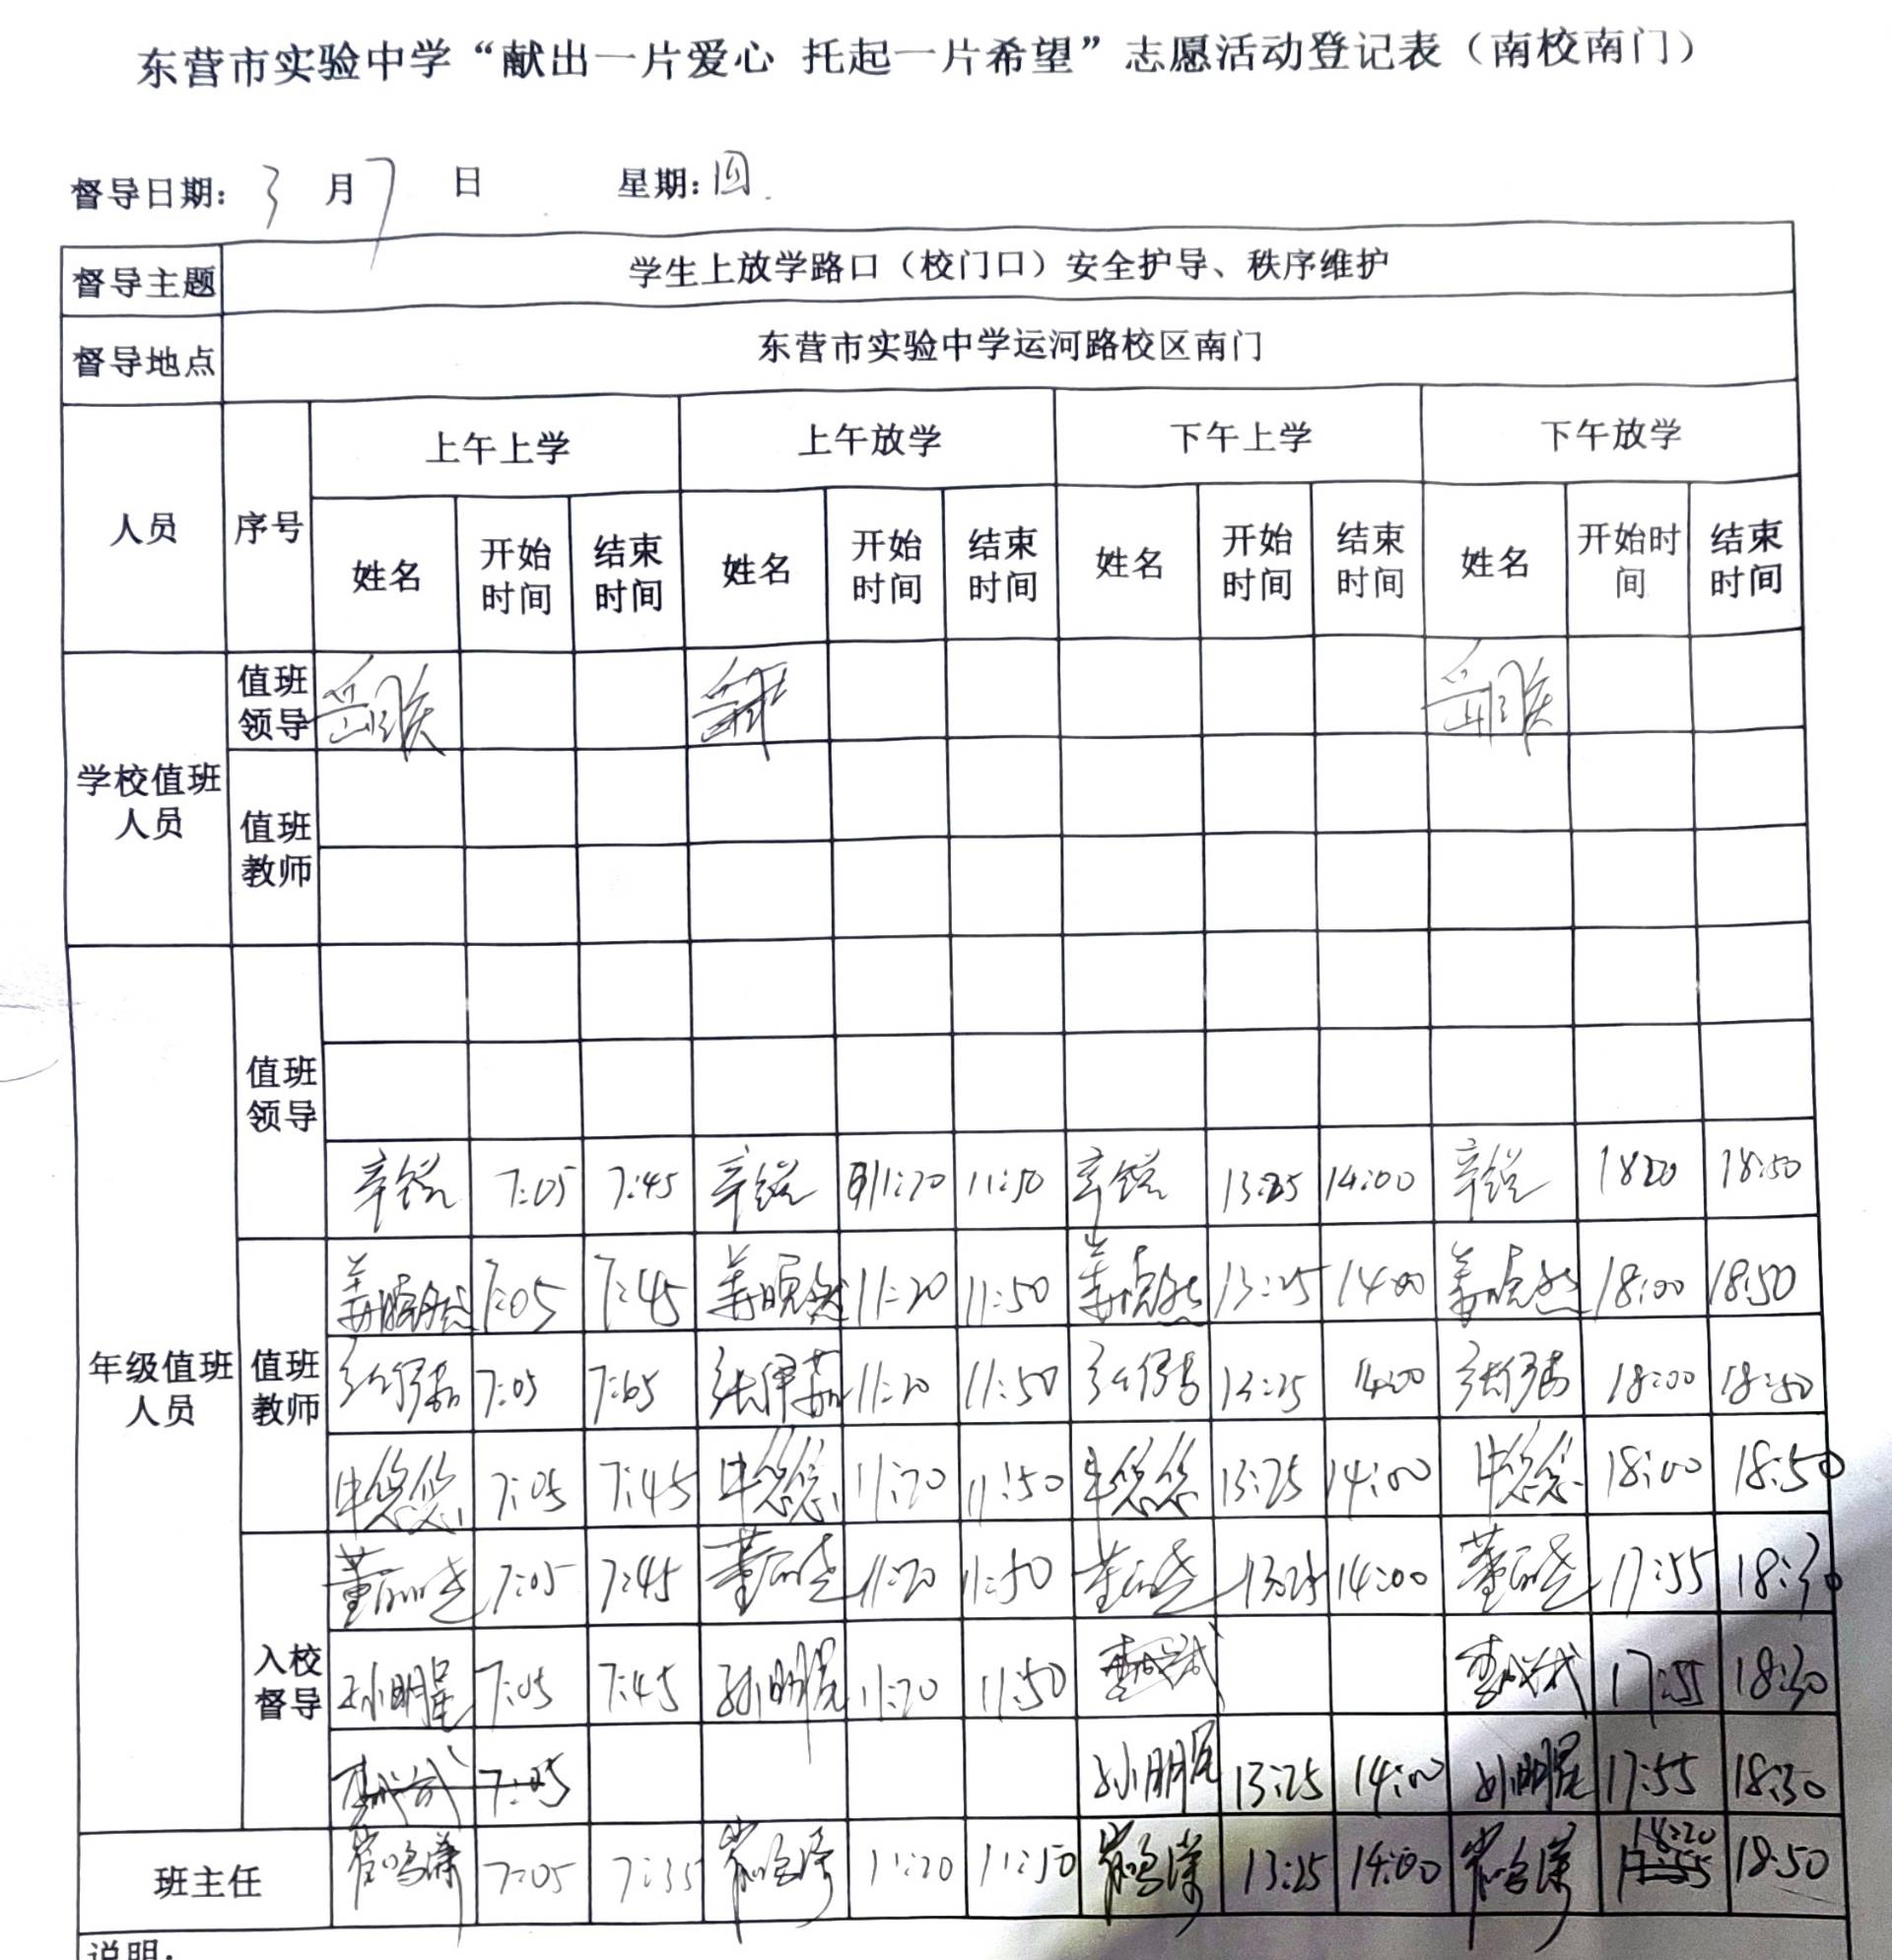 东营市实验中学“献出一片爱心 托起一片希望”志愿活动登记表（南校南门）
督导日期：3月7日 星期：四.
督导主题 学生上放学路口（校门口）安全护导、秩序维护
督导地点 东营市实验中学运河路校区南门
人员 序号 上午上学 上午放学 下午上学 下午放学
姓名 开始时间 结束时间 姓名 开始时间 结束时间 姓名 开始时间 结束时间 姓名 开始时间 结束时间
学校值班人员 值班领导
值班教师
年级值班人员 值班领导
辛锐 7:05 7:45 辛锐 11:20 11:50 辛锐 13:25 14:00 辛锐 1820 18:50
值班教师 姜晓然 7:05 7:45 姜晓然 11:20 11:50 姜晓然 13:25 14:00 姜晓然 18:00 18:50
7:05 张伊茹 11:20 11:50 13:25 14:00 18:00 18:50
牛悠悠 7:05 7:45 牛悠悠 11:20 11:50 牛悠悠 13:25 14:00 牛悠悠 18:00 18:50
入校督导 7:05 7:45 11:20 11:50 14:00 17:55 18:30
孙明星 7:05 7:45 孙明星 11:20 11:50 17:55 18:30
7:05 孙明星 13:25 14:00 孙明星 17:55 18:30
班主任 7:05 7:35 11:20 11:50 13:25 14:00 18:20 18:50
说明：